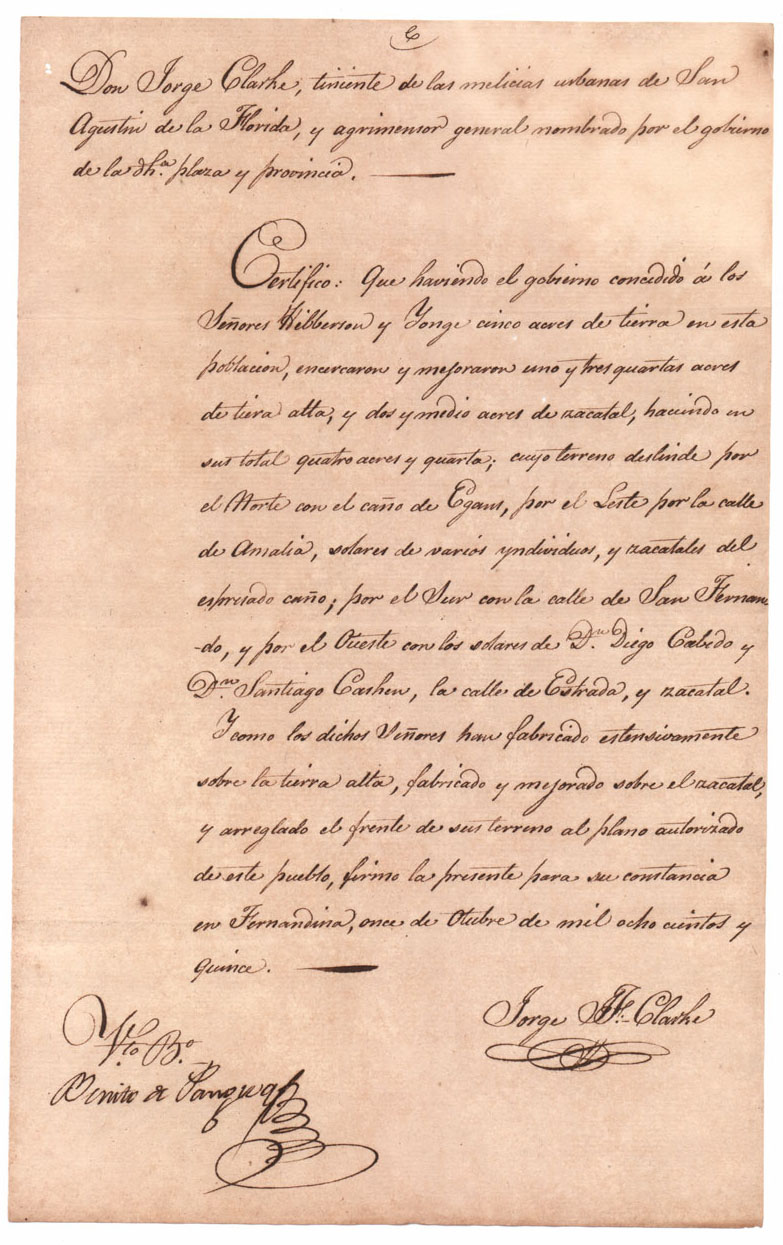 Don Jorge Clarke, tiniente de las milicias urbanas de San
Agustin de la Florida, y agrimensor general nombrado por el gobierno
de la dha. plaza y provincia.
Certifico: Que haviendo el gobierno concedido á los
Señores Hibberson y Yonge cinco acres de tierra en esta
poblacion, encercaron y mejoraron uno y tres quartas acres
de tierra alta, y dos y medio acres de zacatal, haciendo en
sus total quatro acres y quarta; cuyo terreno deslinde por
el Norte con el caño de Egans, por el Leste por la calle
de Amalia, solares de varios yndividuos, y zacatales del
espresado caño; por el Sur con la calle de San Fernan-
-do, y por el Oueste con los solares de Dn. Diego Cabedo y
Dn. Santiago Cashen, la calle de Estrada, y zacatal.
Y como los dichos Señores han fabricado estensivamente
sobre la tierra alta, fabricado y mejorado sobre el zacatal,
y arreglado el frente de sus terreno al plano autorizado
de este pueblo, firmo la presente para su constancia
en Fernandina, once de Otubre de mil ocho cientos y
quince.
Jorge J. F. Clarke
Vto. Bo.
Benito de Pangua